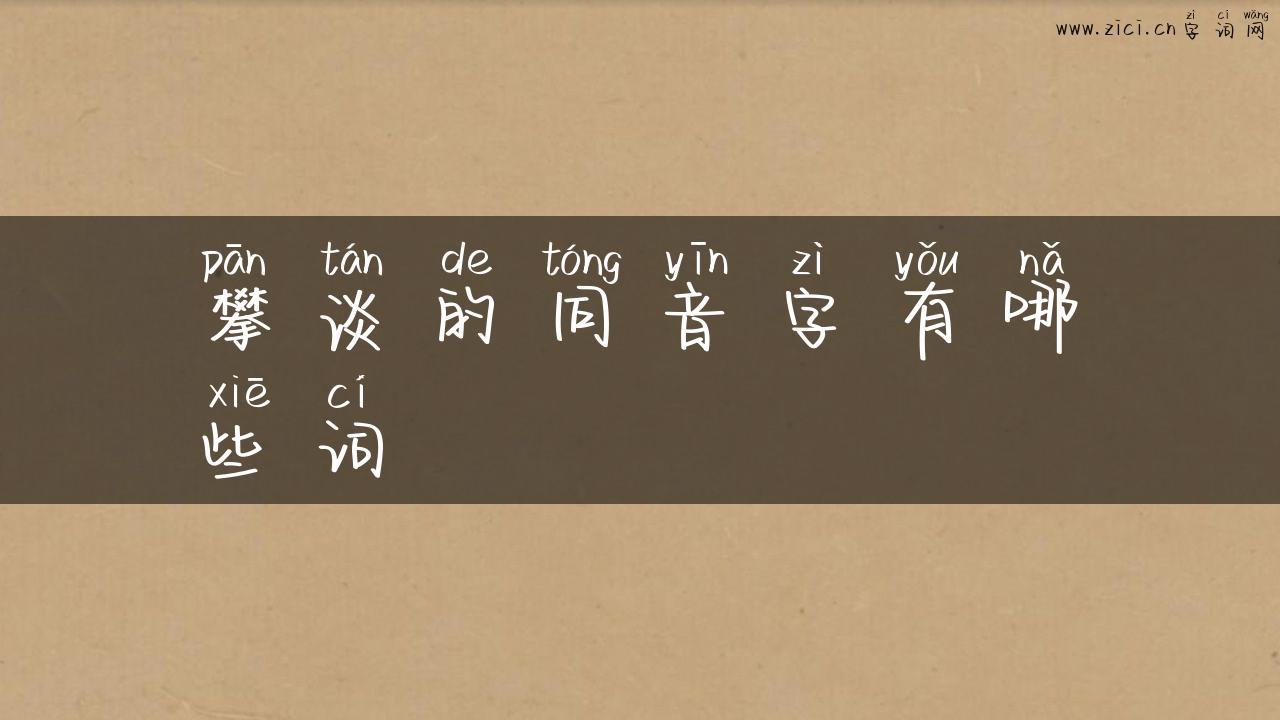 zì cí wǎng
www.zici.cn 字 词 网
pān tán de tóng yīn zì yǒu nǎ
攀 谈 的 同 音 字 有 哪
xiē cí
些 词